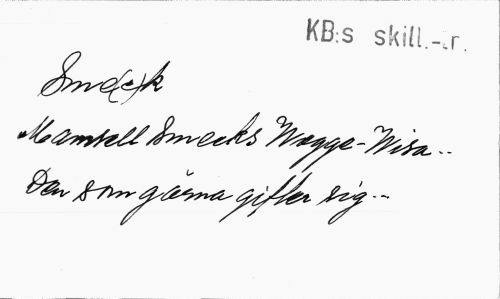 KB:s skill.-tr.
Sme(c)k
Mamsell Smecks Wagge-Wisa..
Den som gärna gifter sig...